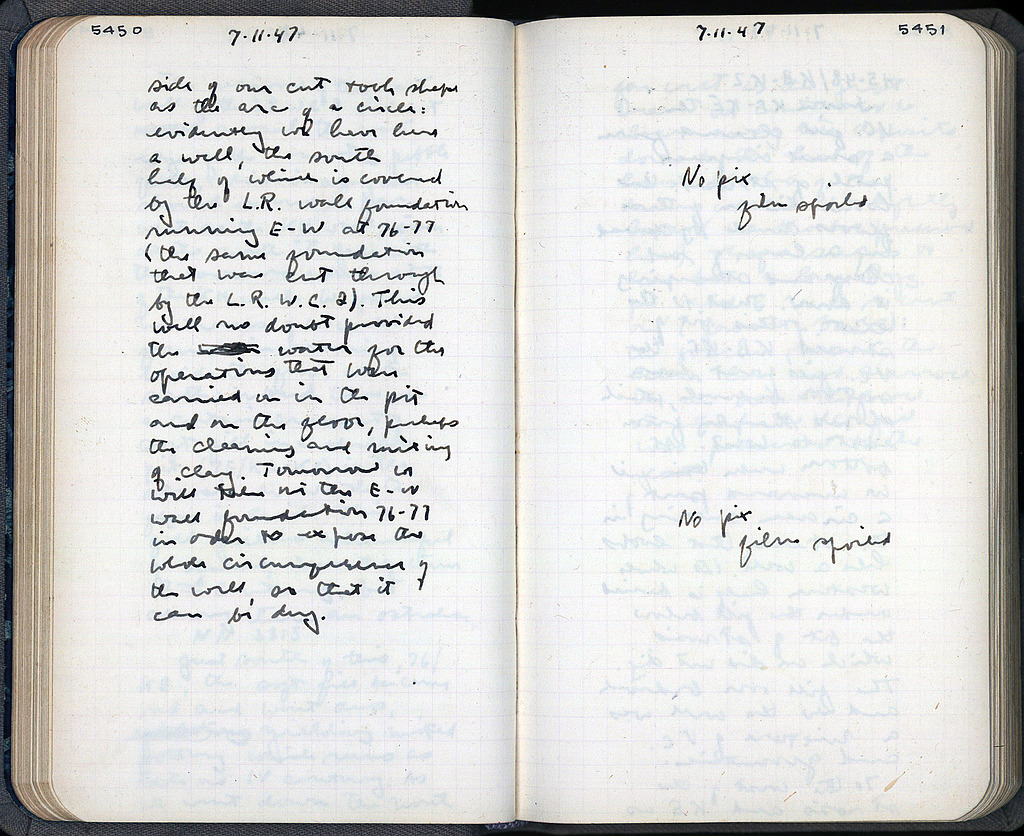 5450
7·11·47
side of our cut took shape
as the arc of a circle:
evidently we have here
a well, the south
half of which is covered
by the L.R. wall foundation
running E-W at 76-77
(the same foundation
that was cut through
by the L.R. W.C. 2). This
well no doubt provided
the water for the
operations that were
carried on in the pit
and on the floor, perhaps
the cleaning and mixing
of clay. Tomorrow we
will the E-W
wall foundation 76-77
in order to expose the
whole circumference of
the well so that it
can be dug.
7·11·47
5451
No pix
film spoiled
No pix
film spoiled